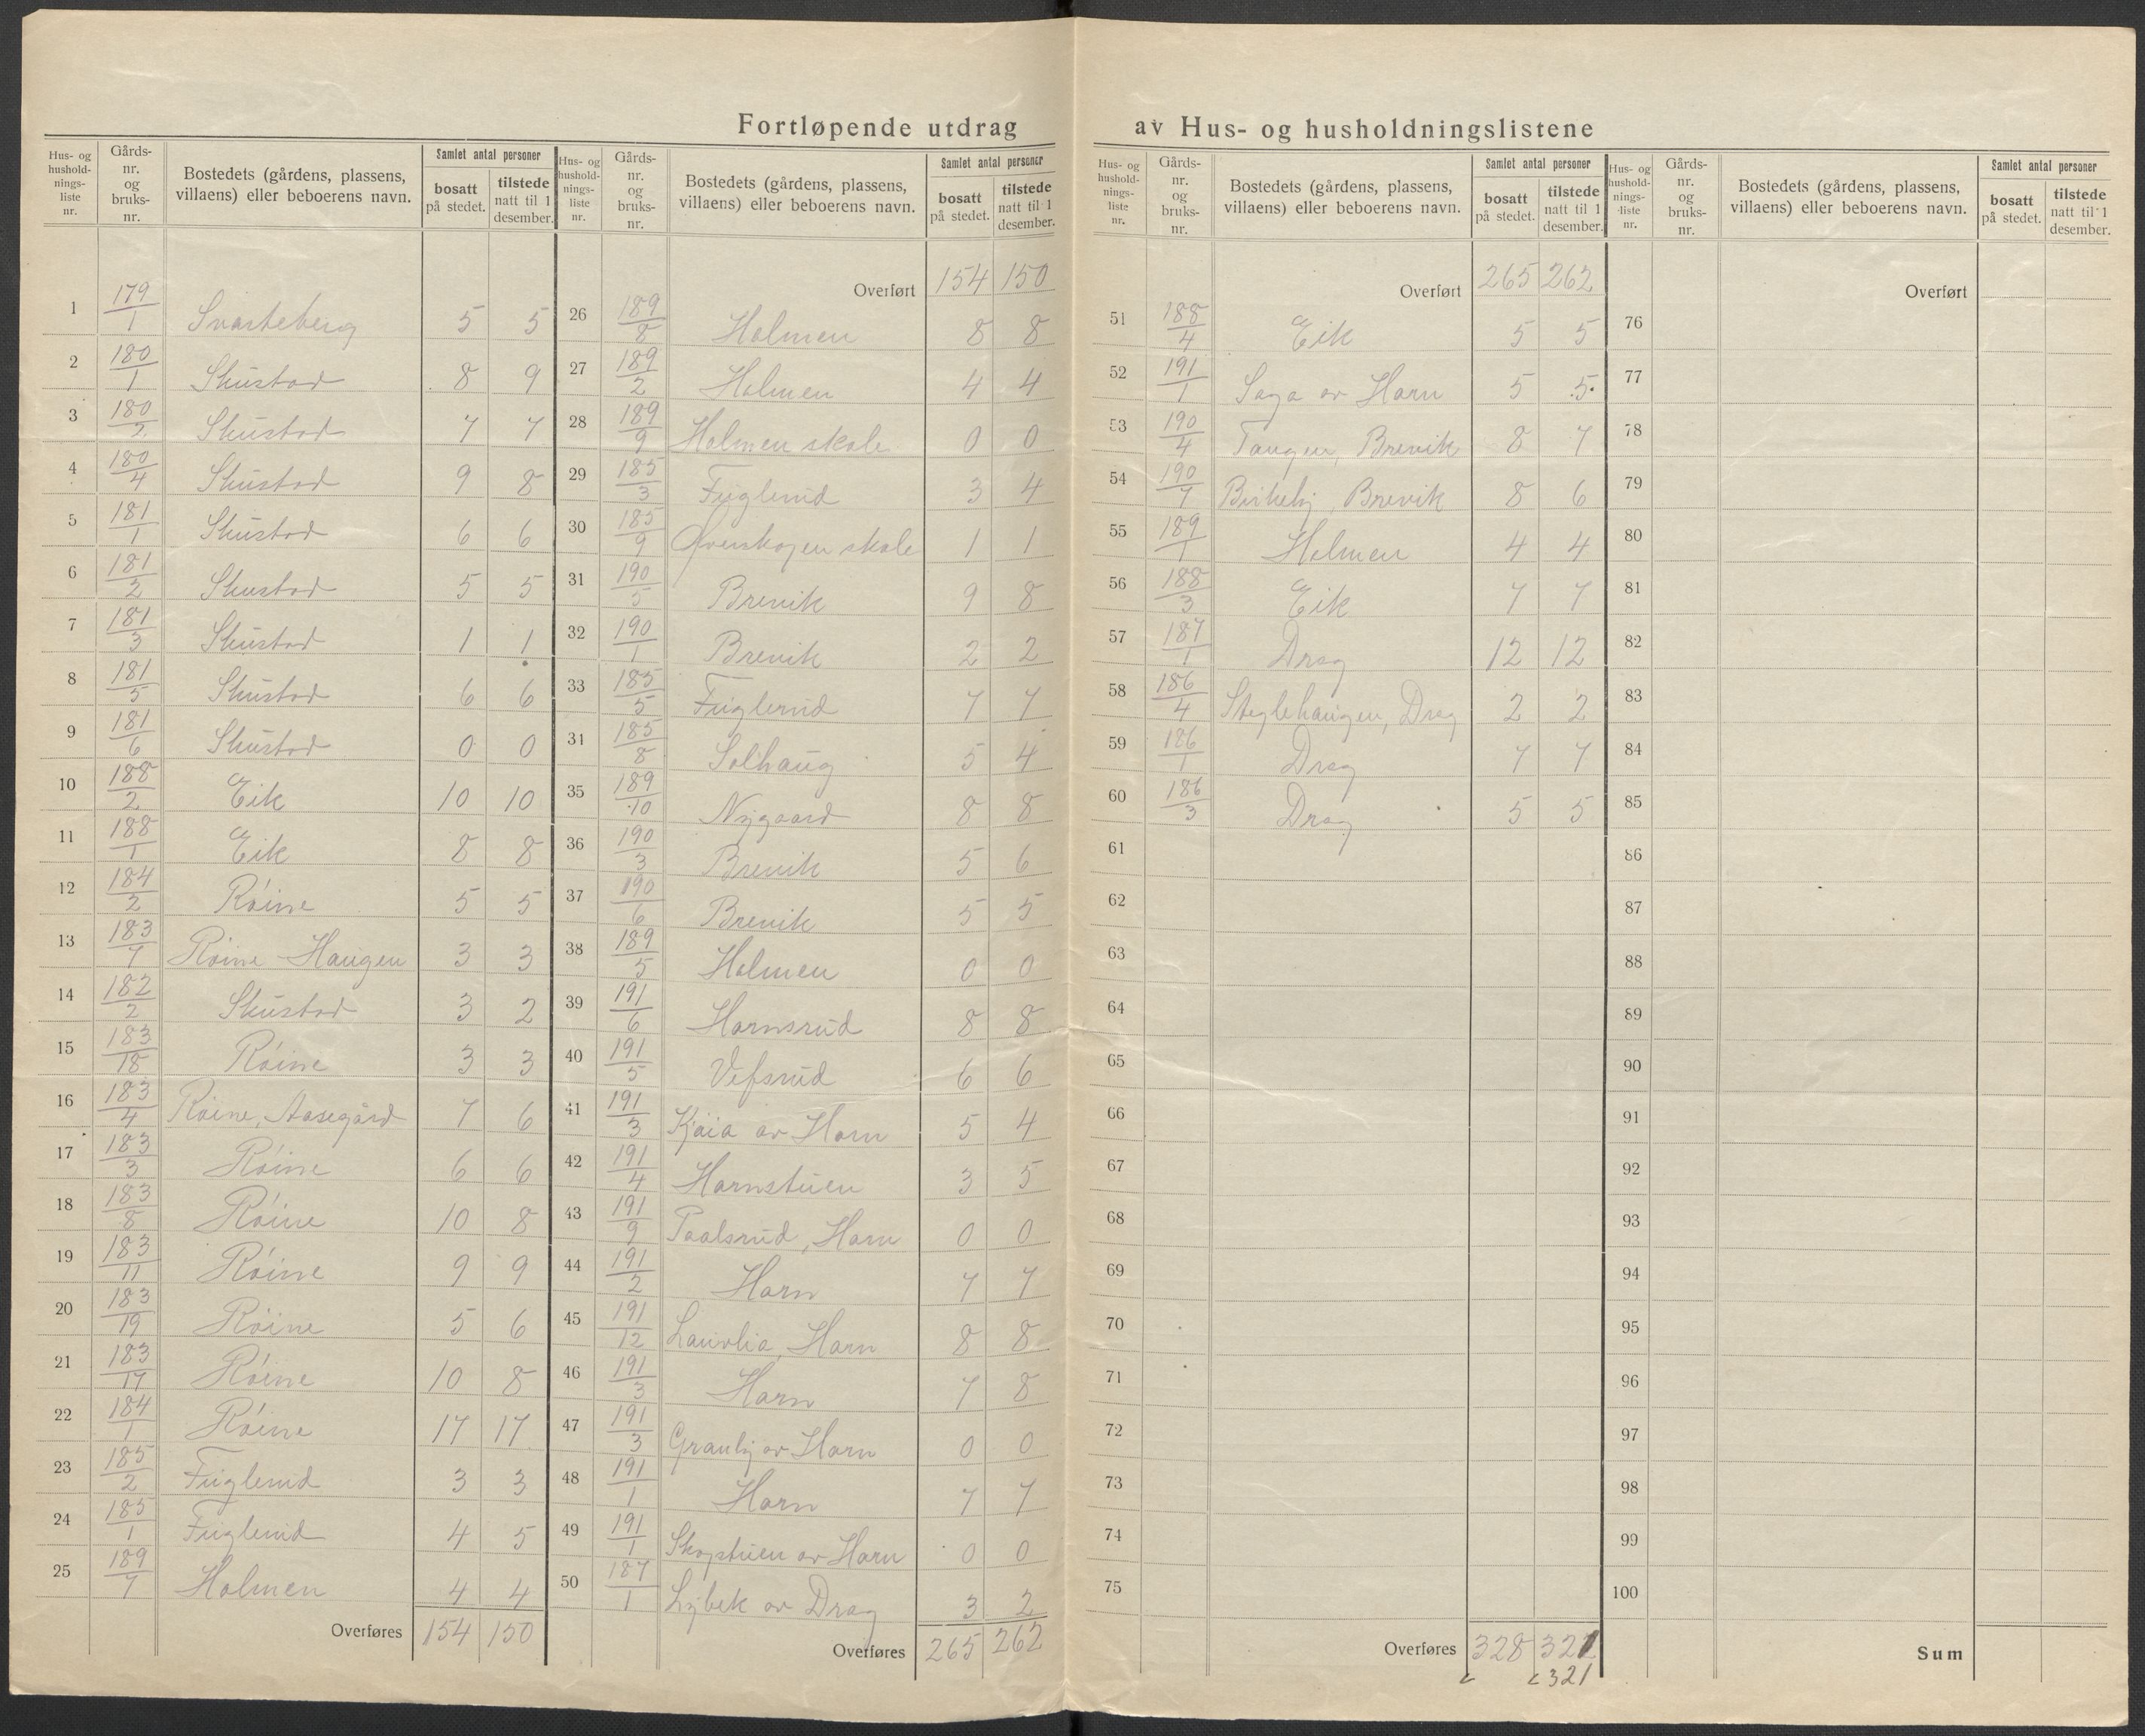 Fortløpende utdrag av Hus- og husholdningslistene
Hus- og hushold-nings-liste nr. Gårds-nr. og bruks-nr. Bostedets (gårdens, plassens, villaens) eller beboerens navn. Samlet antal personer bosatt på stedet. tilstede natt til 1 desember.
1 179/1 Svarteberg 5 5
2 180/1 Skustad 8 9
3 180/2 Skustad 7 7
4 180/4 Skustad 9 8
5 181/1 Skustad 6 6
6 181/2 Skustad 5 5
7 181/3 Skustad 1 1
8 181/5 Skustad 6 6
9 181/6 Skustad 0 0
10 188/2 Eik 10 10
11 188/1 Eik 8 8
12 184/2 Röine 5 5
13 183/7 Röine Haugen 3 3
14 182/2 Skustad 3 2
15 183/18 Röine 3 3
16 183/4 Röine, Aasegård 7 6
17 183/3 Röine 6 6
18 183/8 Röine 10 8
19 183/11 Röine 9 9
20 183/19 Röine 5 6
21 183/17 Röine 10 8
22 184/1 Röine 17 17
23 185/2 Fuglerud 3 3
24 185/1 Fuglerud 4 5
25 189/7 Holmen 4 4
Overføres 154 150
Hus- og hushold-nings-liste nr. Gårds-nr. og bruks-nr. Bostedets (gårdens, plassens, villaens) eller beboerens navn. Samlet antal personer bosatt på stedet. tilstede natt til 1 desember.
Overført 154 150
26 189/8 Holmen 8 8
27 189/2 Holmen 4 4
28 189/9 Holmen skole 0 0
29 185/3 Fuglerud 3 4
30 185/9 Øverskogen skole 1 1
31 190/5 Brevik 9 8
32 190/1 Brevik 2 2
33 185/5 Fuglerud 7 7
31 185/8 Solhaug 5 4
35 189/10 Nygaard 8 8
36 190/3 Brevik 5 6
37 190/6 Brevik 5 5
38 189/5 Holmen 0 0
39 191/6 Harnsrud 8 8
40 191/5 Vefsrud 6 6
41 191/3 Kjaia av Harn 5 4
42 191/4 Harnstuen 3 5
43 191/9 Paalsrud, Harn 0 0
44 191/2 Harn 7 7
45 191/12 Laurlia, Harn 8 8
46 191/3 Harn 7 8
47 191/3 Granby av Harn 0 0
48 191/1 Harn 7 7
49 191/1 Skopstuen av Harn 0 0
50 187/1 Lybek av Drag 3 2
Overføres 265 262
Hus- og hushold-nings-liste nr. Gårds-nr. og bruks-nr. Bostedets (gårdens, plassens, villaens) eller beboerens navn. Samlet antal personer bosatt på stedet. tilstede natt til 1 desember.
Overført 265 262
51 188/4 Eik 5 5
52 191/1 Saga av Harn 5 5
53 190/4 Tangen, Brevik 8 7
54 190/7 Birkeby, Brevik 8 6
55 189/1 Holmen 4 4
56 188/3 Eik 7 7
57 187/1 Drag 12 12
58 186/4 Steglehaugen, Drag 2 2
59 186/1 Drag 7 7
60 186/3 Drag 5 5
61
62
63
64
65
66
67
68
69
70
71
72
73
74
75
Overføres 328 321
321
Hus- og hushold-nings-liste nr. Gårds-nr. og bruks-nr. Bostedets (gårdens, plassens, villaens) eller beboerens navn. Samlet antal personer bosatt på stedet. tilstede natt til 1 desember.
Overført
76
77
78
79
80
81
82
83
84
85
86
87
88
89
90
91
92
93
94
95
96
97
98
99
100
Sum